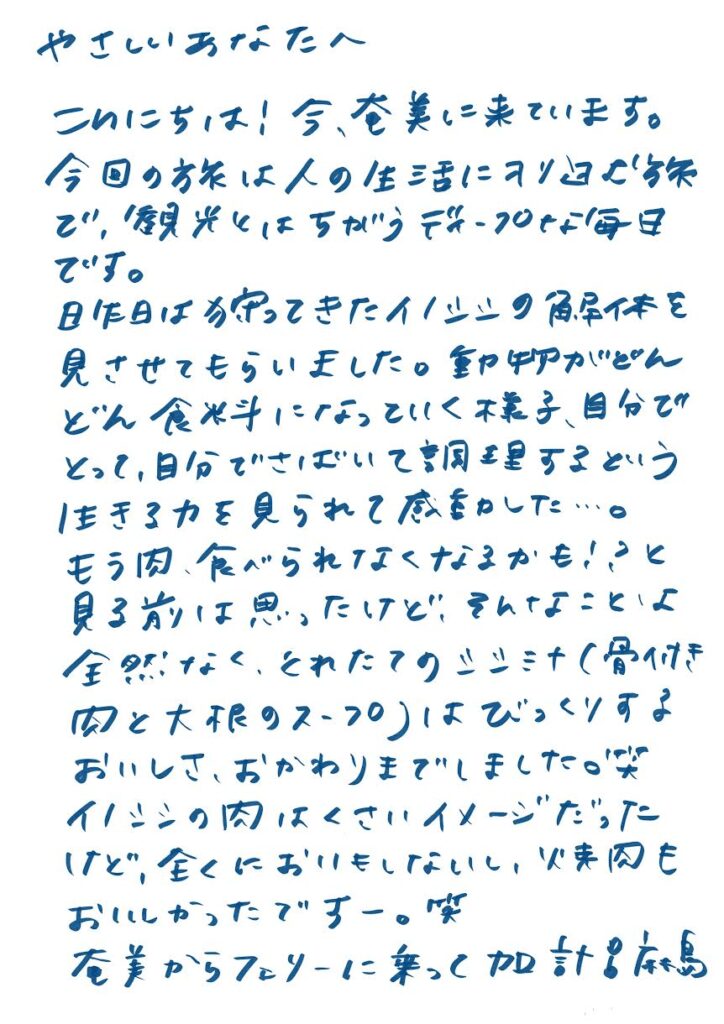 やさしいあなたへ
こんにちは！今、奄美に来ています。
今回の旅は人の生活に入り込む旅
で、観光とはちがうディープな毎日
です。
昨日は狩ってきたイノシシの解体を
見させてもらいました。動物がどん
どん食料になっていく様子、自分で
とって、自分でさばいて調理するという
生きる力を見られて感動した…。
もう肉、食べられなくなるかも！？と
見る前は思ったけど、そんなことは
全然なく、とれたてのシシミナ（骨付き
肉と大根のスープ）はびっくりする
おいしさ、おかわりまでしました。笑
イノシシの肉はくさいイメージだった
けど、全くにおいもしないし、焼肉も
おいしかったですー。笑
奄美からフェリーに乗って加計呂麻島